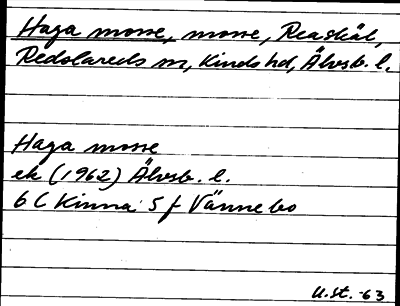 Haga mosse, mosse, Reaskäl,
Redslareds sn, Kinds hd, Älvsb. l.
Haga mosse
ek (1962) Älvsb. l.
6 C Kinna 5 f Vännebo
U.St. -63